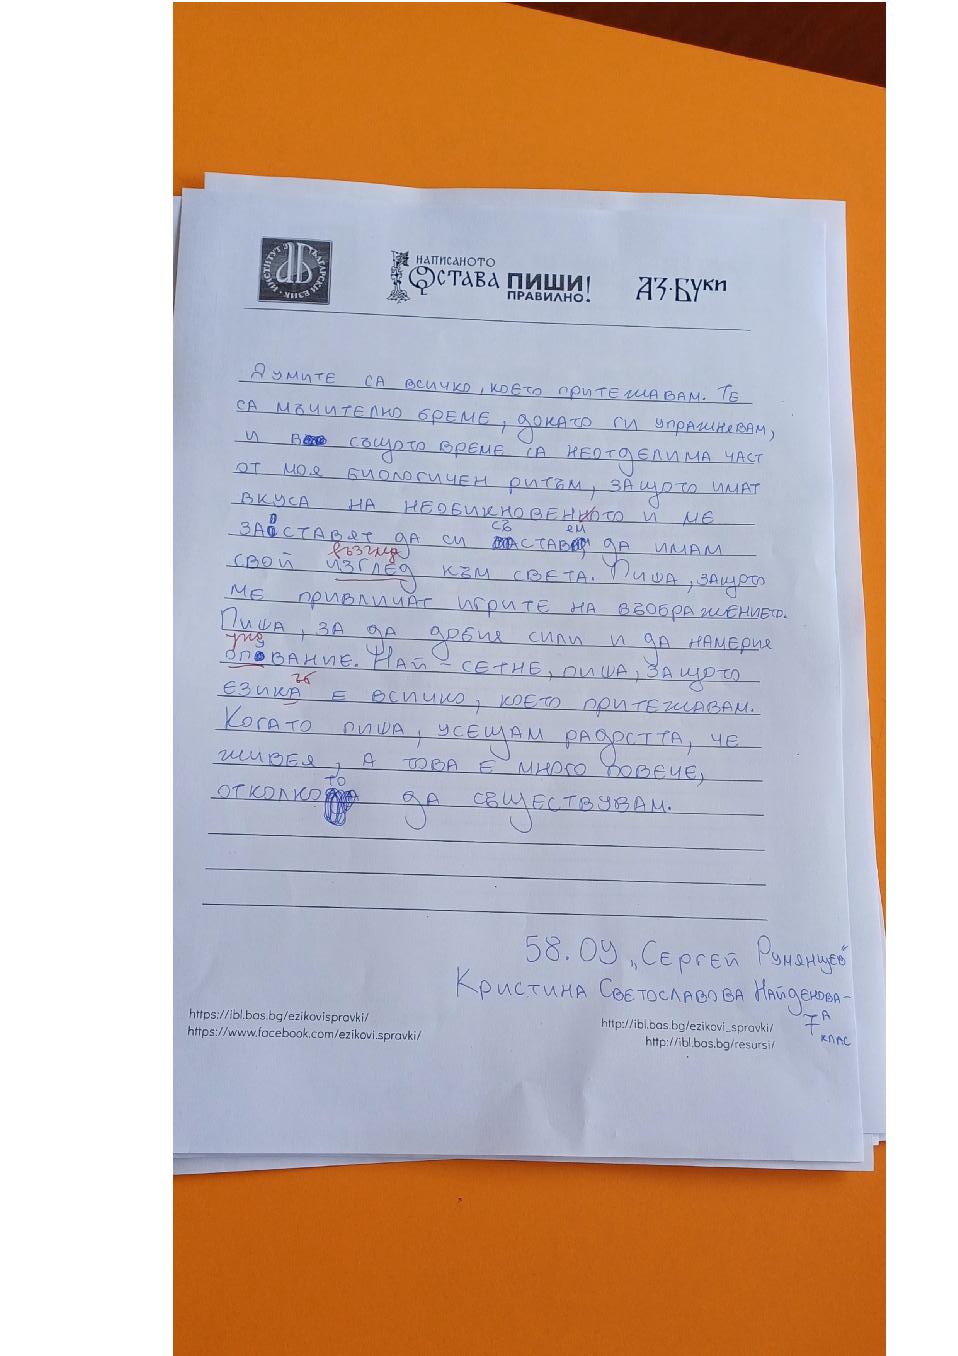 ИНСТИТУТ ЗА БЪЛГАРСКИ ЕЗИК
НАПИСАНОТО
ОСТАВА ПИШИ
ПРАВИЛНО!
АЗ·БУКИ
Думите са всичко, което притежавам. Те
са мъчително бреме, докато ги упражневам,
и в същото време са неотделима част
от моя биологичен ритъм, защото имат
вкуса на необикновенното и ме
заоставят да си съставем, да имам
възглед
свой изглед към света. Пиша, защото
ме привличат игрите на въображението.
Пиша, за да добия сили и да намеря
упо
опование. Най-сетне, пиша, защото
ът
езика е всичко, което притежавам.
Когато пиша, усещам радостта, че
живея, а това е много повече,
отколкото да съществувам.
58. ОУ „Сергей Румянцев"
Кристина Светославова Найденова-
7 А клас
https://ibl.bas.bg/ezikovispravki/
https://www.facebook.com/ezikovi.spravki/
http://ibl.bas.bg/ezikovi_spravki/
http://ibl.bas.bg/resursi/